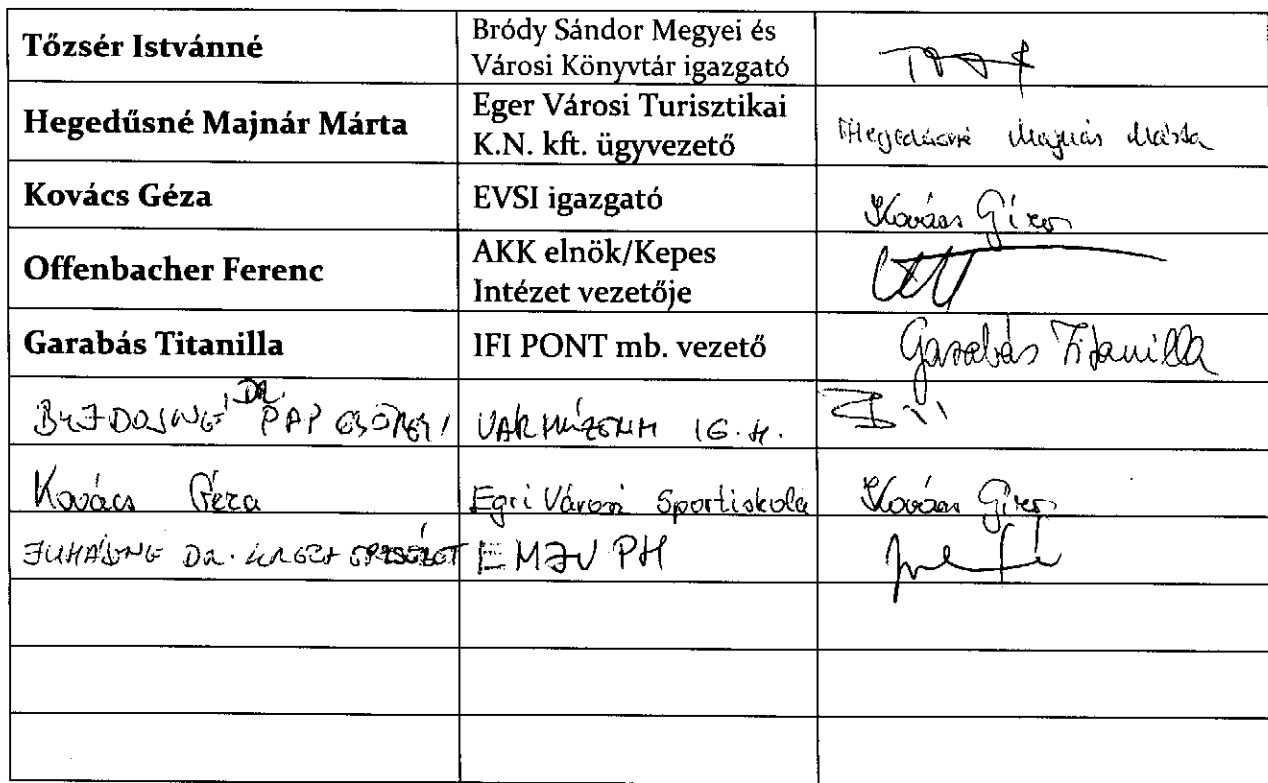 Tőzsér Istvánné
Bródy Sándor Megyei és
Városi Könyvtár igazgató
Hegedűsné Majnár Márta
Eger Városi Turisztikai
K.N. kft. ügyvezető
Hegedűsné Majnár Márta
Kovács Géza
EVSI igazgató
Kovács Géza
Offenbacher Ferenc
AKK elnök/Kepes
Intézet vezetője
Garabás Titanilla
IFI PONT mb. vezető
Garabás Titanilla
DR. PAP
VÁRMÚZEUM IG. H.
Kovács Géza
Egri Városi Sportiskola
Kovács Géza
JUHÁSZNÉ DR.
EMJV PH